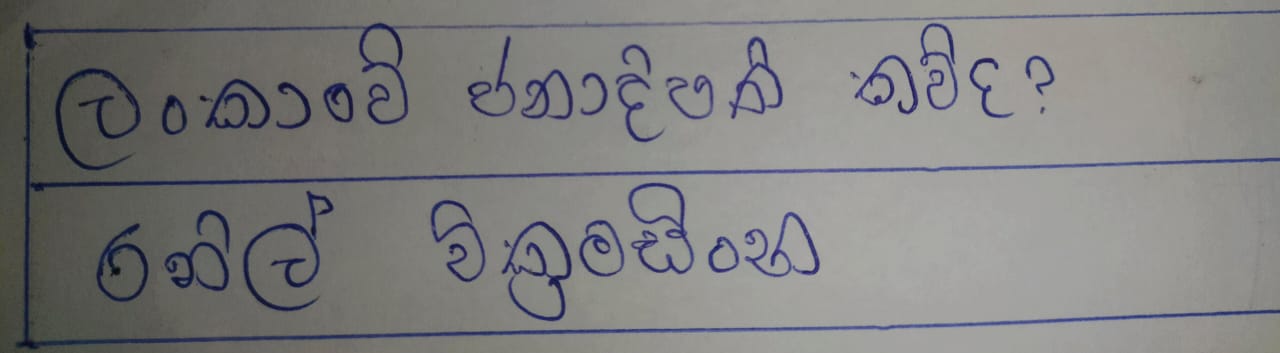 ලංකාවේ ජනාදිපති කව්ද?
රනිල් වික්‍රමසිංහ